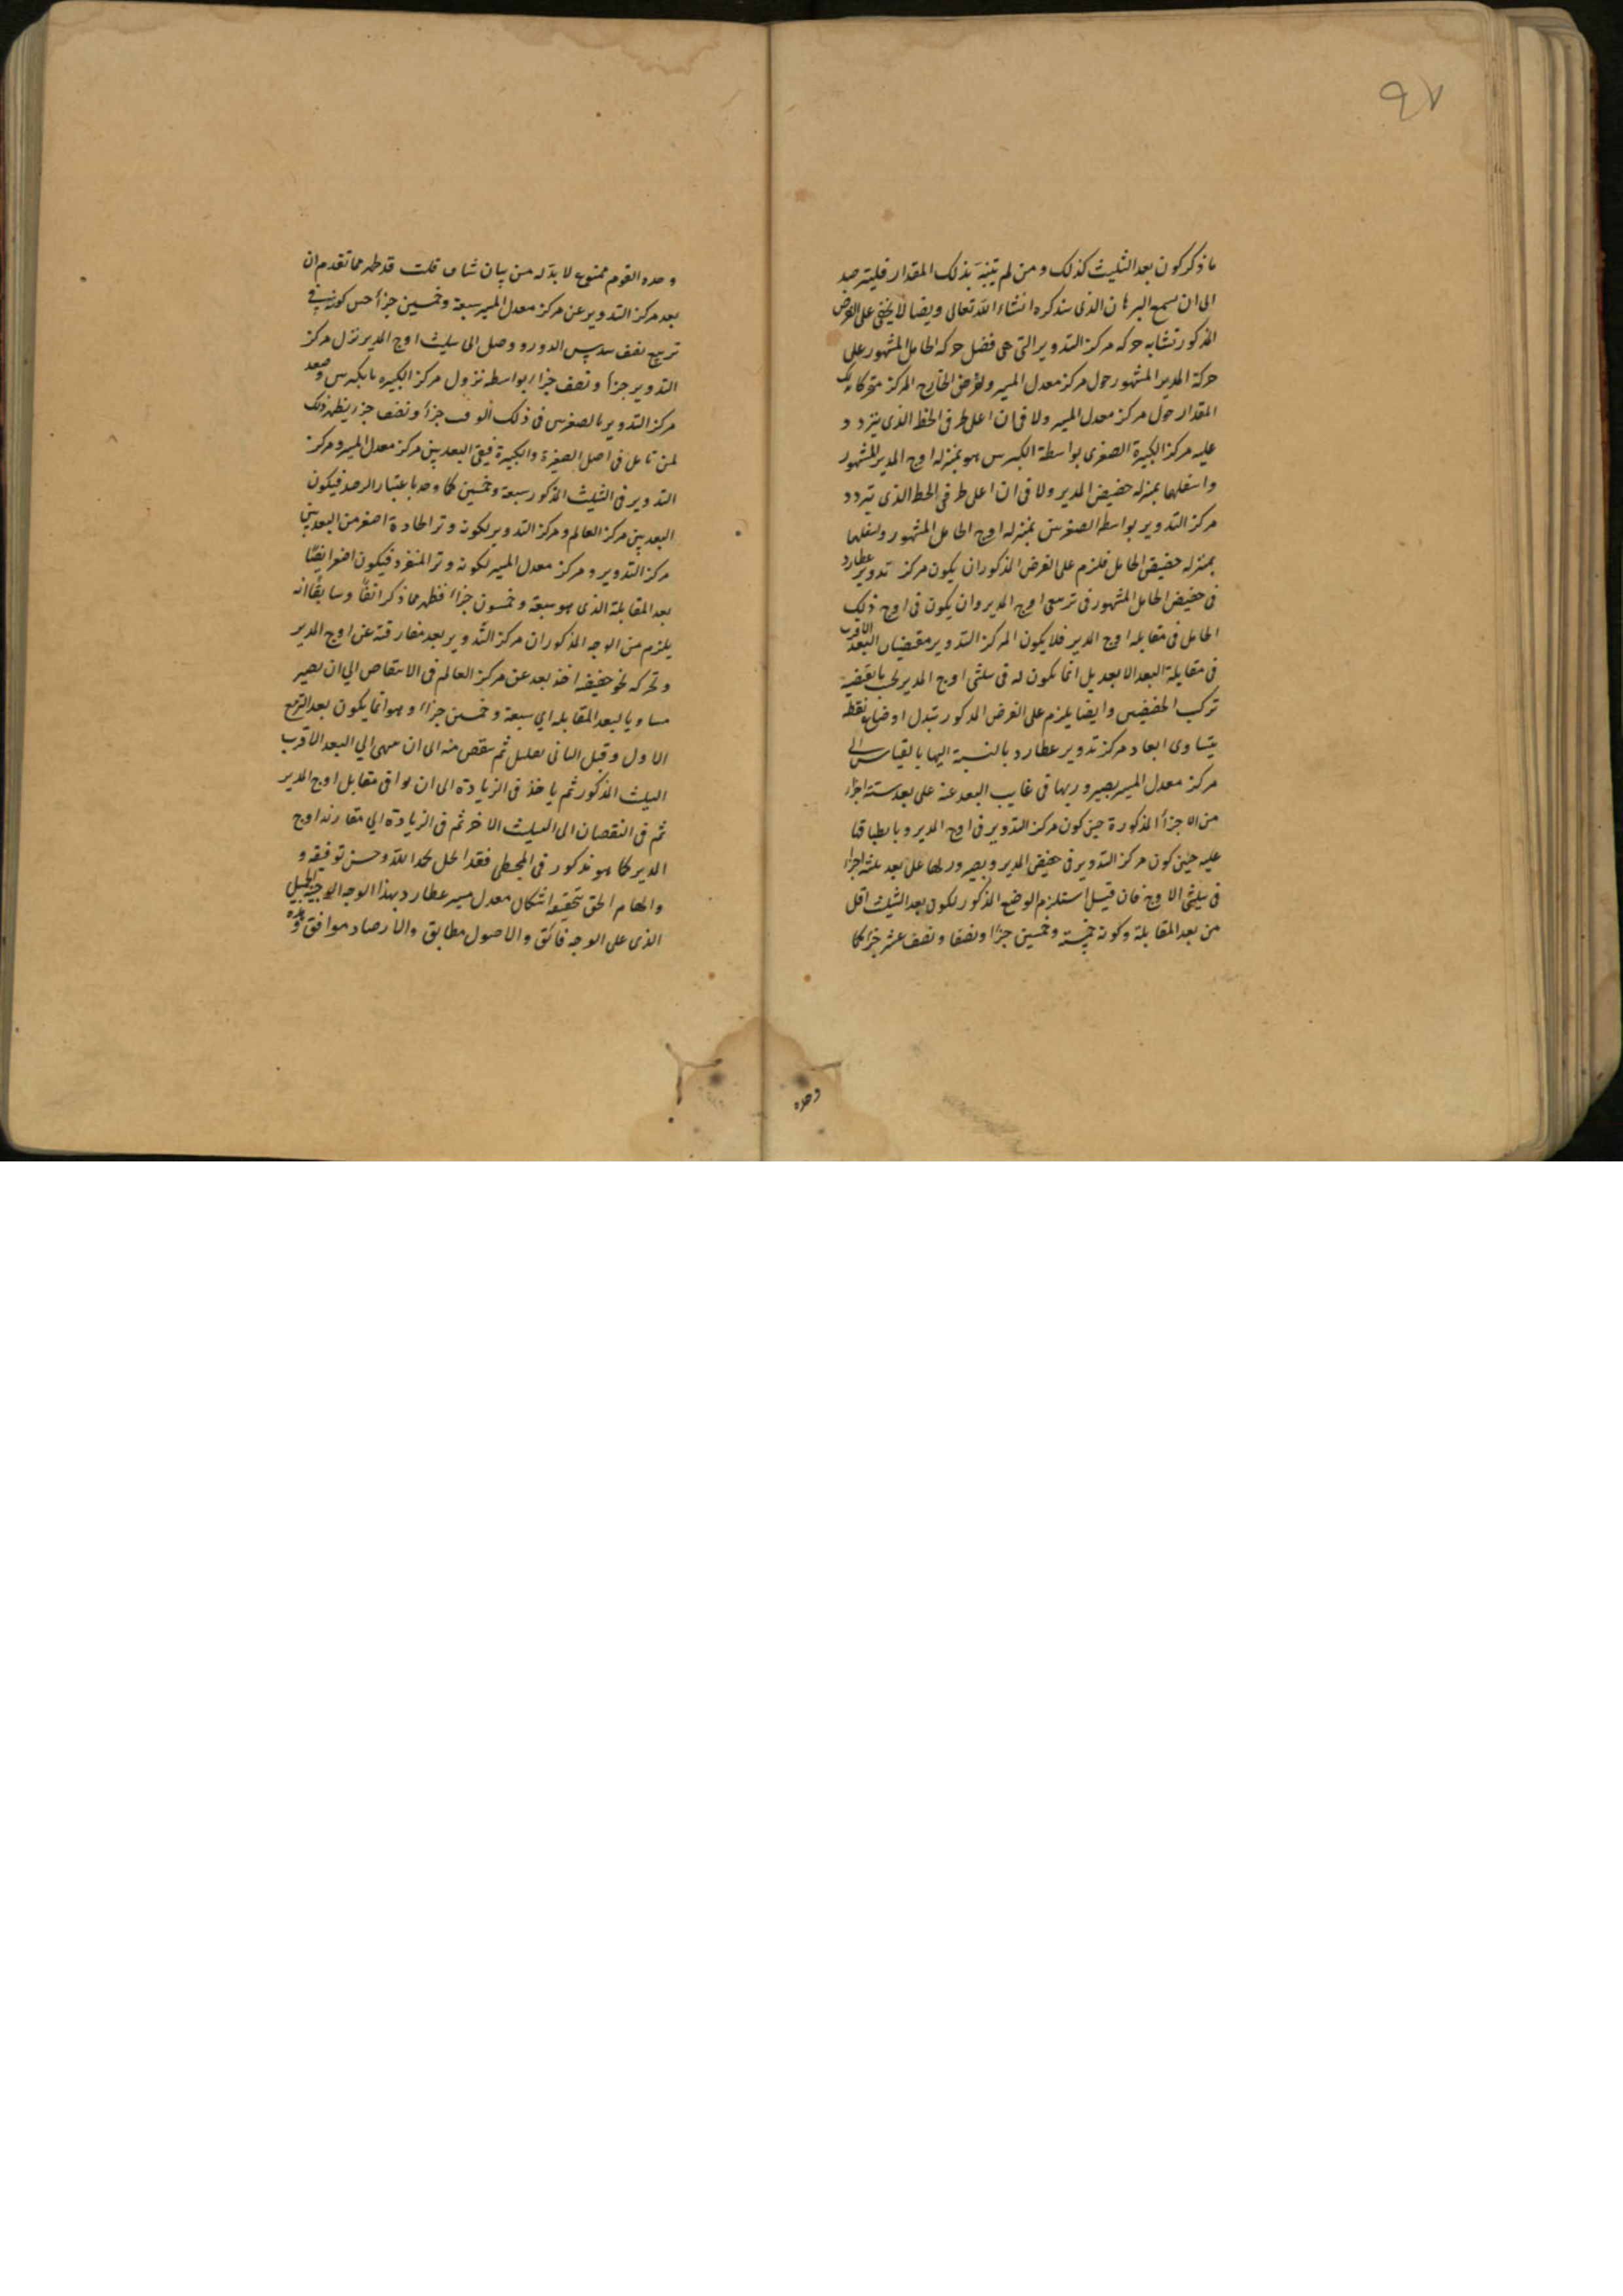 ٩٧
ما ذكر كون بعد التثليث كذلك و من لم يتنبه بذلك المقدار فليترصد
الى ان يسمع البرهان الذى سنذكره انشاء الله تعالى و يضا لا يخفى على الفرض
المذكور تشابه حركه مركز التدوير التى هى فضل حركه الحامل المشهور على
حركة المدير المشهور حول مركز معدل المسير و لفرض الخارج المركز متحركا ذلك
المقدار حول مركز معدل المسير ولا فى ان اعلى طرفى الخط الذى يتردد
عليه مركز الكبيرة الصغرى بواسطة الكبرس هو بمنزله اوج المدير المشهور
و اسفلها بمنزله حضيض المدير ولا فى ان اعلى طرفى الخط الذى يتردد
مركز التدوير بواسطه الصغرس بمنزله اوج الحامل المشهور و اسفلها
بمنزله حضيض الحامل فلزم على الفرض المذكور ان يكون مركز تدوير عطارد
فى حضيض الحامل المشهور فى تربيعى اوج المدير وان يكون فى اوج ذلك
الحامل فى مقابله اوج المدير فلا يكون لمركز التدوير مقتضيان البعد الاقرب
فى مقابلة البعد الابعد بل انما يكون له فى ثلثى اوج المدير لحسب ما يقتضيه
تركب الحضيضين و ايضا يلزم على الفرض المذكور تبدل اوضاع نقطه
يتساوى ابعاد مركز تدوير عطارد بالنسبة اليها بالقياس الى
مركز معدل المسير بصيرورتها فى غايت البعد عنه على بعد ستة اجزاء
من الاجزأ المذكورة حين كون مركز التدوير فى اوج المدير و بانطباقها
عليه حين كون مركز التدوير فى حضيض المدير و بصيرورتها على بعد ثلثة اجزا
فى ثليثى الاوج فان قيل استلزم الوضع المذكور لكون بعد التثليث اقل
من بعد المقابلة وكونه خمسة و خمسين جزأ و نصفا و نصف عشر جزء كما
وحده
وحده القوم ممنوع لا بد له من بيان شاف قلت قد ظهر مما تقدم ان
بعد مركز التدوير عن مركز معدل المسير سبعة و خمسين جزأ حين كونه فى
تربيع نصف سدس الدور و وصل الى ثليث اوج المدير نزل مركز
التدوير جزأ و نصف جزء بواسطه نزول مركز الكبيره بالكبرس و صعد
مركز التدوير بالصغرس فى ذلك الوقت جزأ و نصف جزء يظهر ذلك
لمن تامل فى اصل الصغيرة و الكبيرة فبقى البعد بين مركز معدل المسير و مركز
التدوير فى الثليث المذكور سبعة و خمسين كما وجد باعتبار الرصد فيكون
البعد بين مركز العالم و مركز التدوير لكونه وتر الحادة اصغر من البعد بين
مركز التدوير و مركز معدل المسير لكونه وتر المنفرد فيكون اصغر ايضا
بعد المقابلة الذى هو سبعة و خمسون جزأ فظهر مما ذكر انفا و سابقا انه
يلزم من الوجه المذكور ان مركز التدوير بعد مفارقته عن اوج المدير
و تحركه نحو حضيضه اخذ بعد عن مركز العالم فى الانتقاص الى ان يصير
مساويا لبعد المقابله اي سبعة و خمسين جزأ و هو انما يكون بعد التربيع
الاول و قبل الثانى بقليل ثم ينقص منه الى ان ينتهى الي البعد الاقرب
الثليث المذكور ثم ياخذ فى الزيادة الى ان يوافى مقابل اوج المدير
ثم فى النقصان الى الثليث الاخر ثم فى الزيادة الي مقارنه اوج
المدير كما هو مذكور فى المجسطى فقد انحل بحمد الله و حسن توفيقه و
و الهام الحق بتحقيقه اشكال معدل مسير عطارد بهذا الوجه الوجيه الجميل
الذى على الوجه فائق و الاصول مطابق و الارصاد موافق و هذه